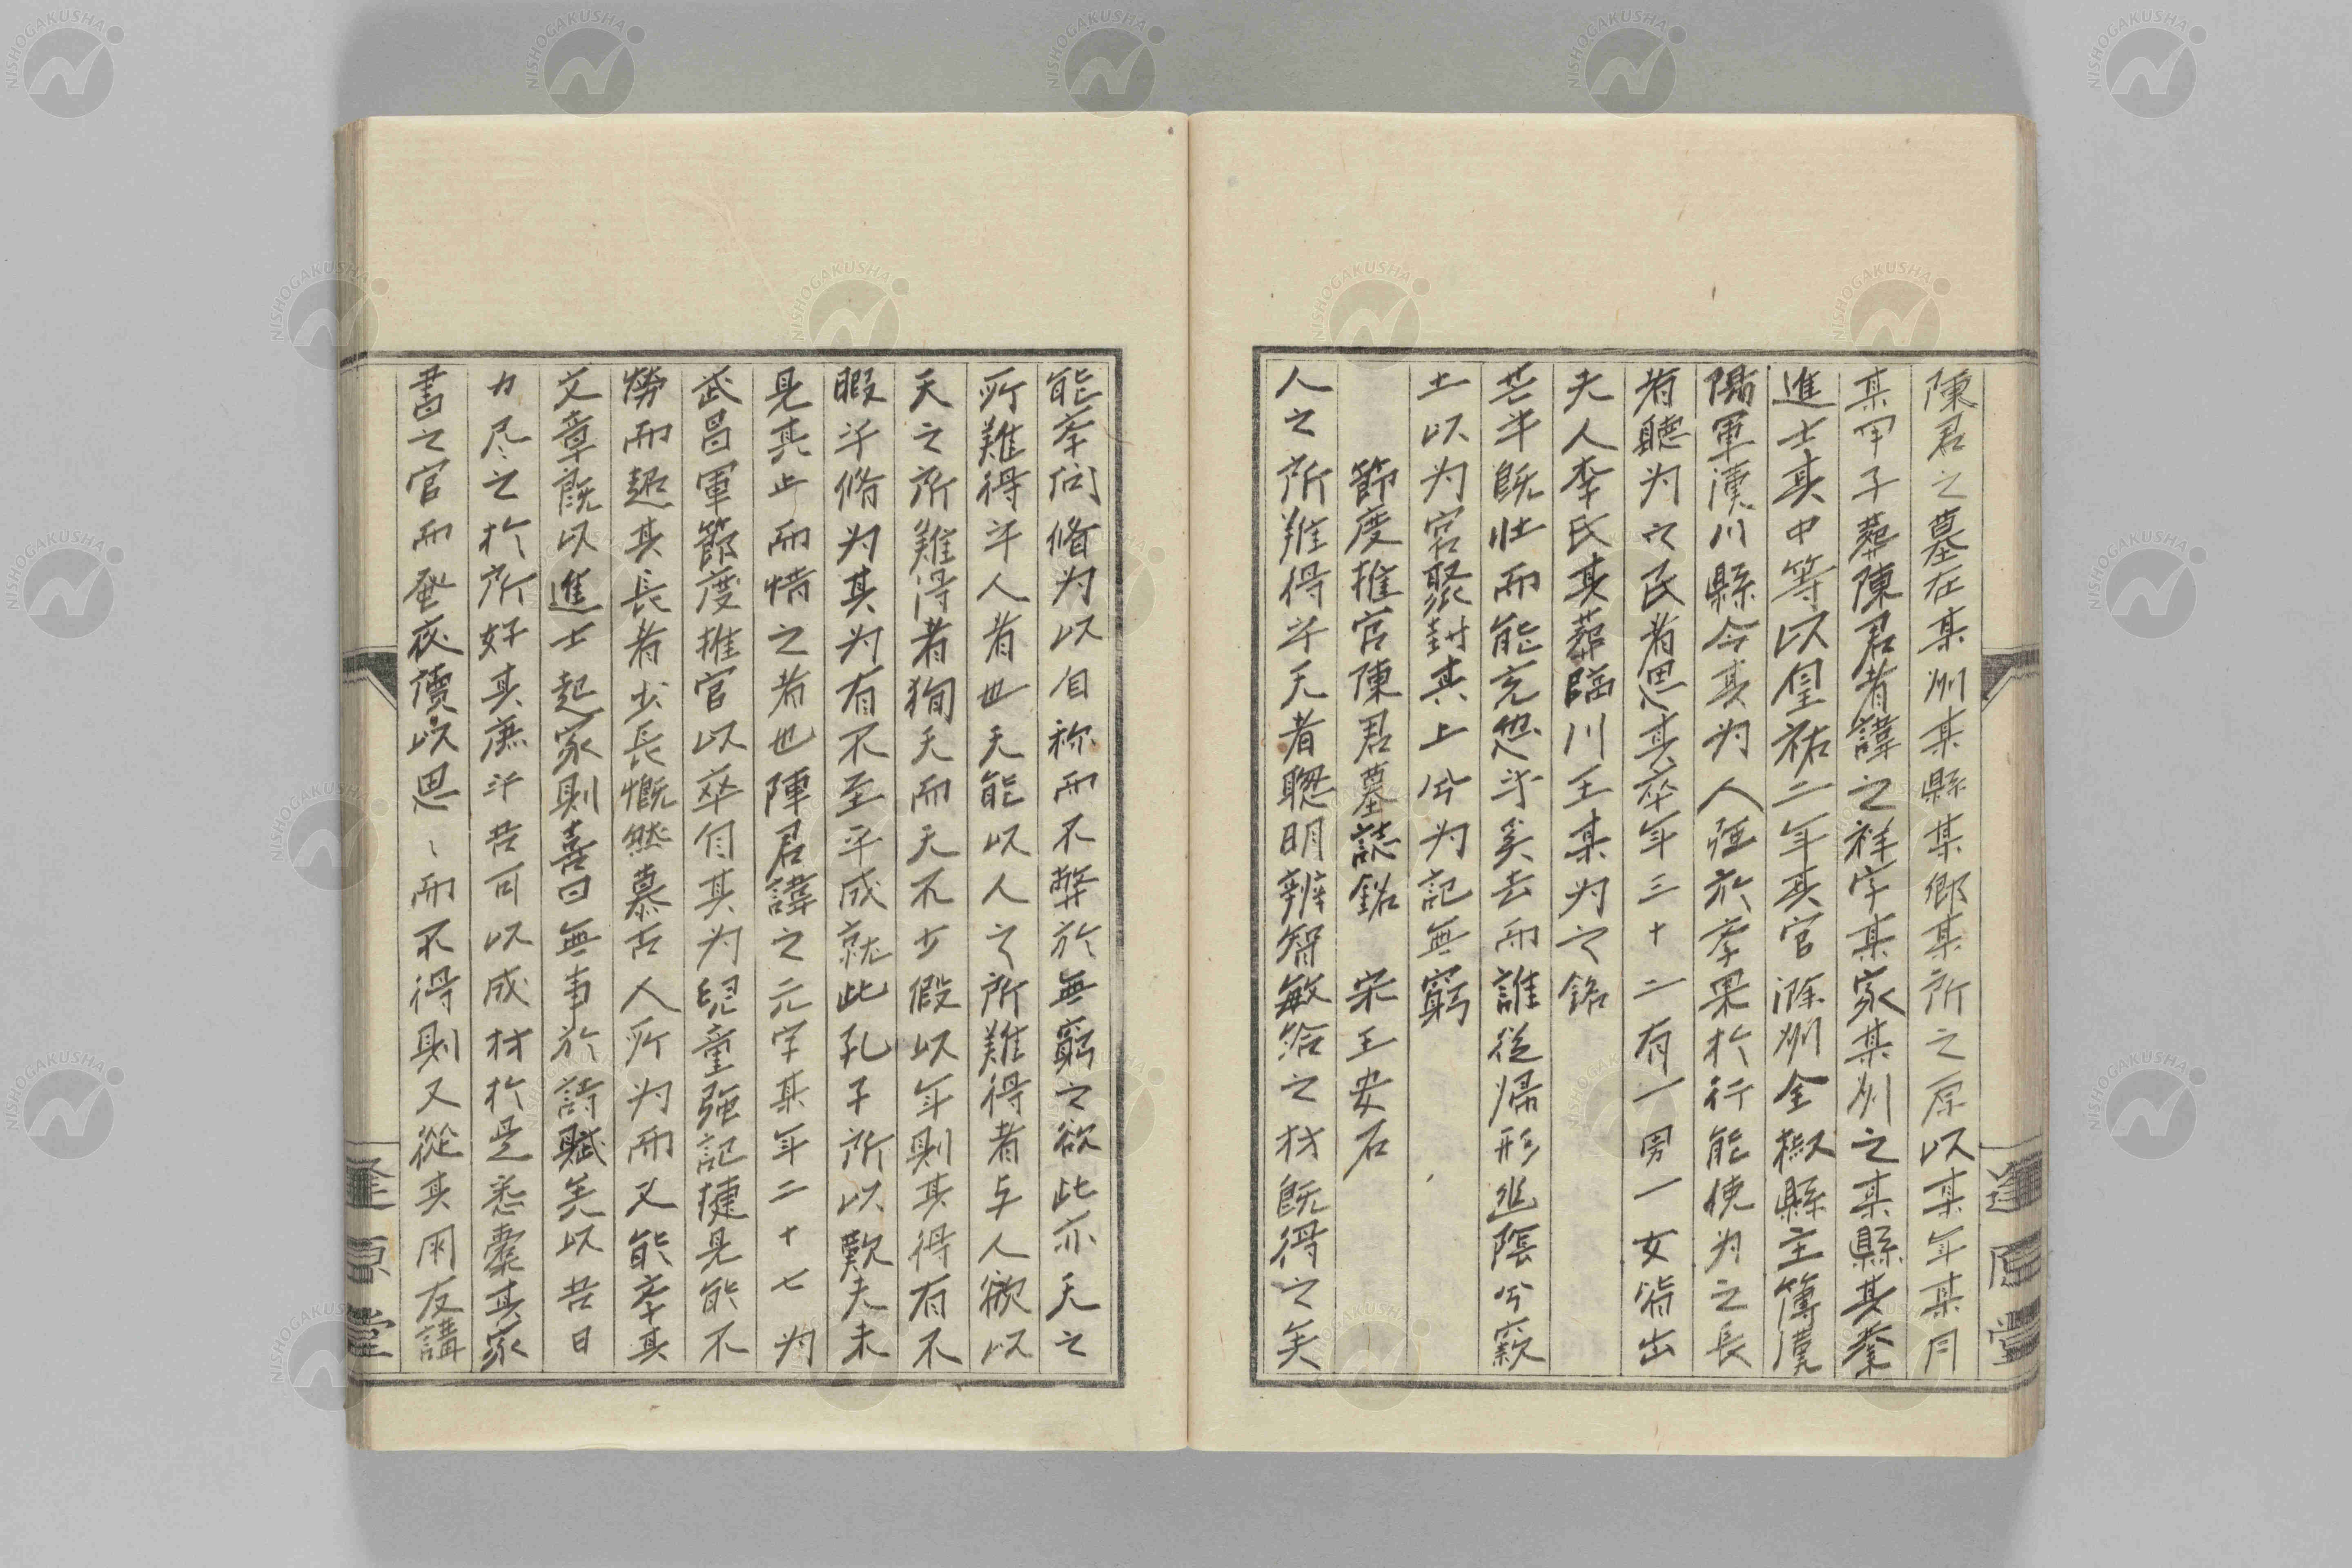 陳君之墓在某州某縣某鄉某所之原以某年某月
某甲子葬陳君者諱之祥字某家某州之某縣其舉
進士其中等以皇祐二年其官滁州全椒縣主簿漢
陽軍漢川縣令其为人强於孝果於行能使为之長
者聽为之民者思其卒年三十二有一男一女皆出
夫人李氏其葬臨川王某为之銘
芒乎既壮而能克怨乎奚去而誰從歸形幽陰兮竅
土以为宮聚封其上兮为記無窮
節度推官陳君墓誌銘　宋王安石
人之所難得乎天者聰明辨智敏給之材既得之矣
能孝问脩为以自称而不弊於無窮之欲此亦天之
所難得乎人者也天能以人之所難得者与人欲以
天之所難得者狥天而天不少假以年則其得有不
暇乎脩为其为有不至乎成就此孔子所以歎夫未
見其止而惜之者也陳君諱之元字某年二十七为
武昌軍節度推官以卒自其为兒童強記捷見能不
勞而超其長者少長慨然慕古人所为而又能孝其
文章既以進士起家則喜曰無事於詩賦矣以吾日
力尽之於所好其庶乎吾可以成材於是悉橐其家
書之官而蚤夜讀以思〻而不得則又從其朋友講
逢原堂
逢原堂
NISHOGAKUSHA